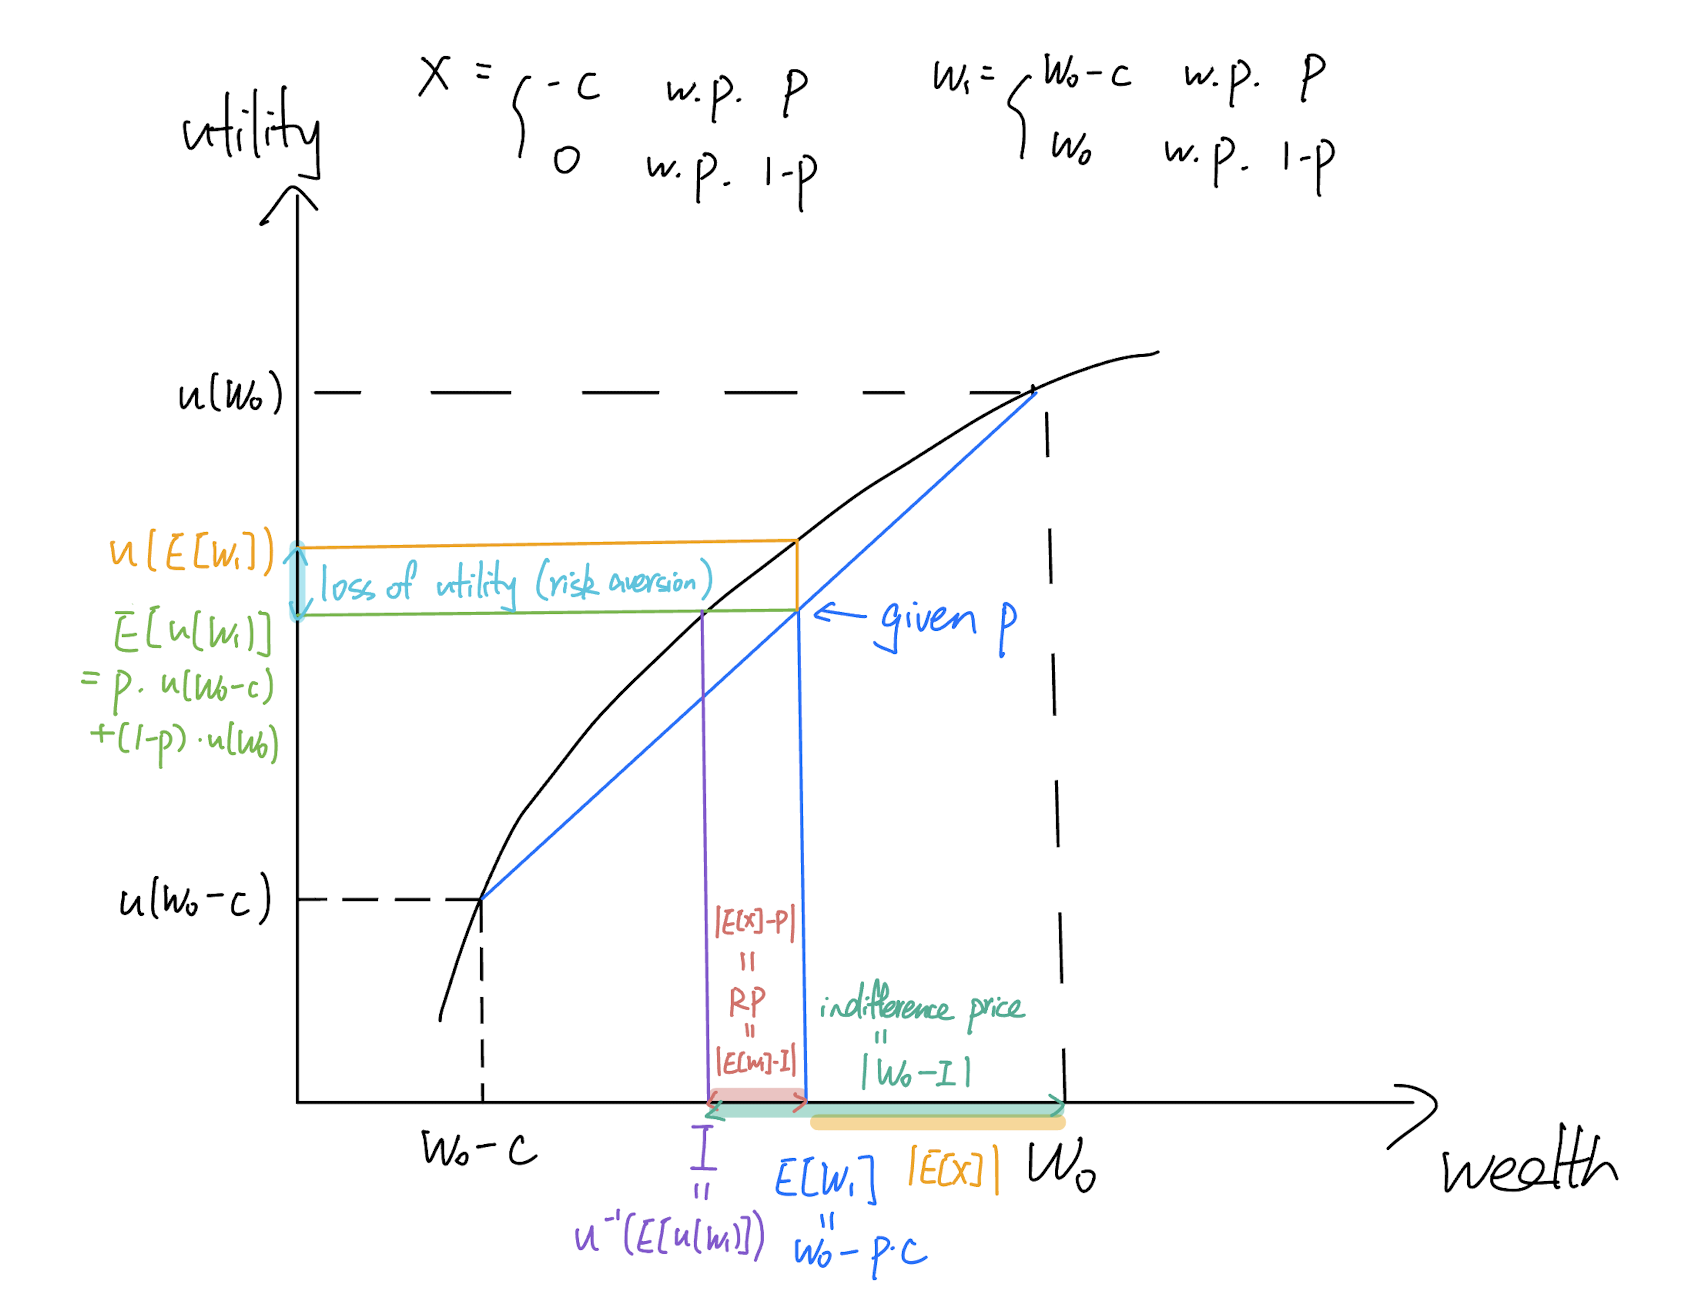 X = { -C w.p. P
0 w.p. 1-p
W₁ = { W₀-C w.p. P
W₀ w.p. 1-p
utility
u(W₀)
u(E[W₁])
loss of utility (risk aversion)
E[u(W₁)]
= p. u(W₀-c)
+(1-p)·u(W₀)
given p
u(W₀-c)
|E[X]-P|
=
RP
=
|E[W₁]-I|
indifference price
=
|W₀-I|
W₀-C
I
=
u⁻¹(E[u(W₁)])
E[W₁]
=
W₀-P·C
|E[X]|
W₀
wealth